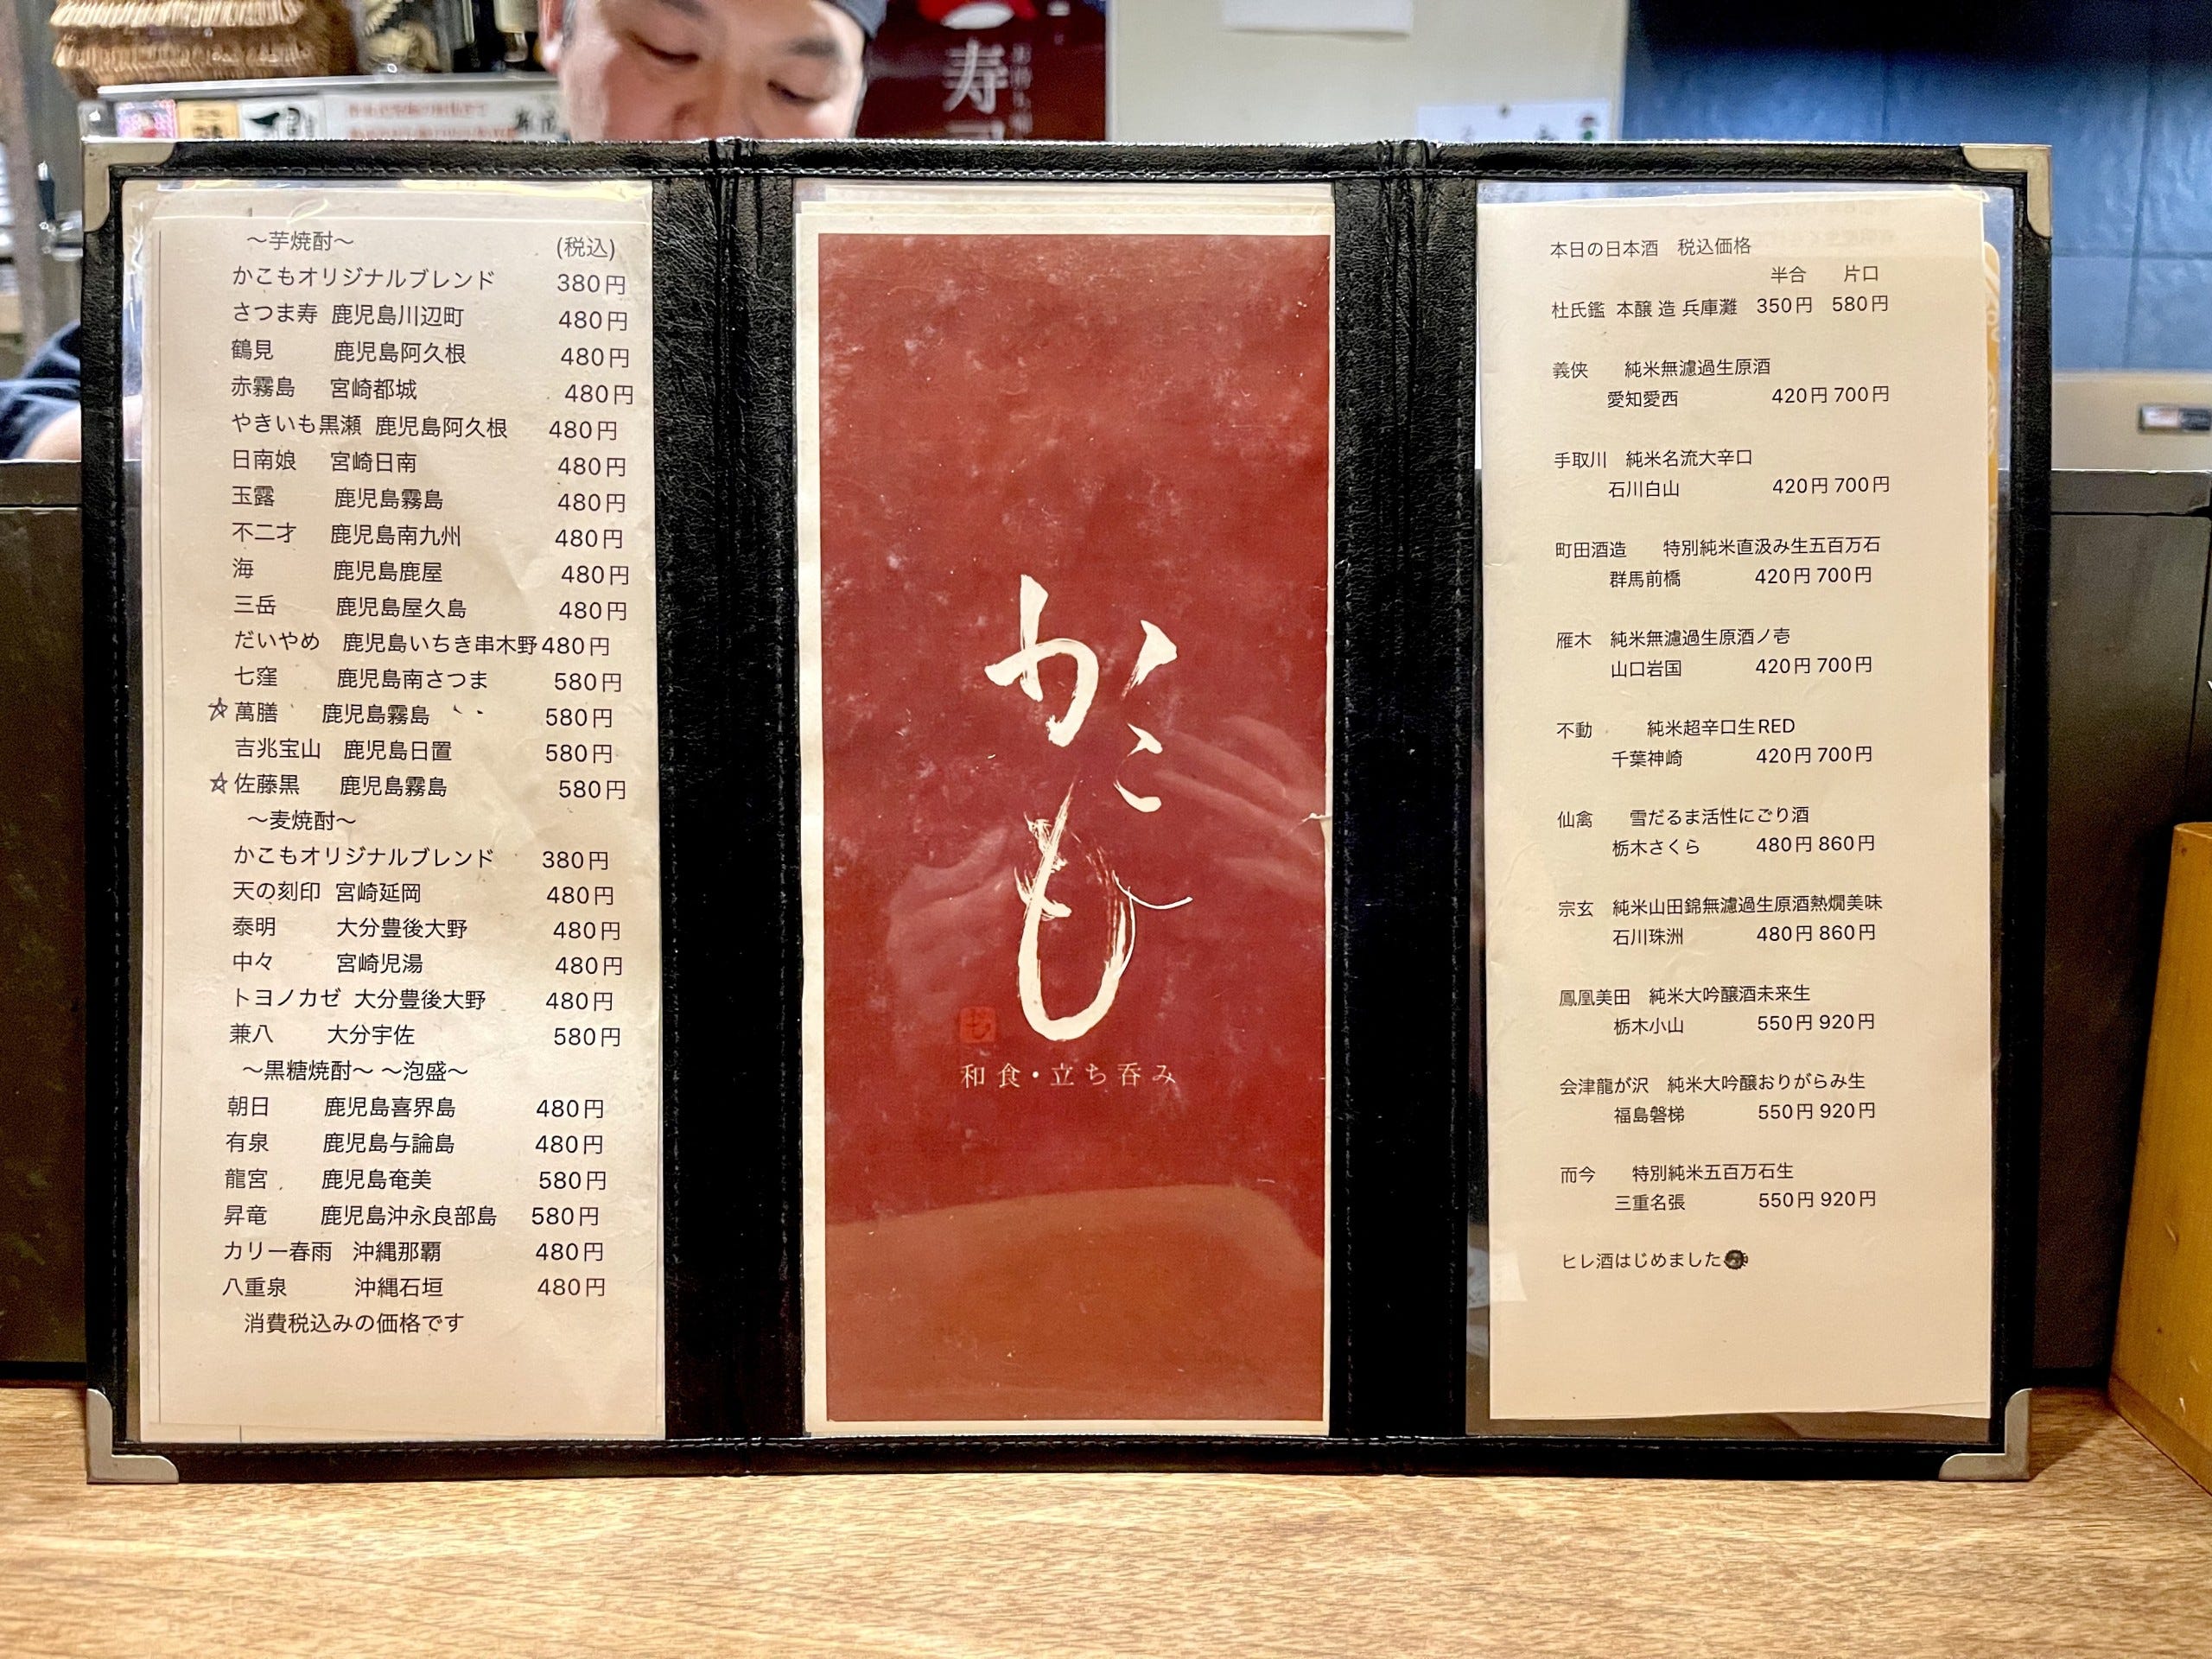 寿
〜芋焼酎〜 (税込)
かこもオリジナルブレンド 380円
さつま寿 鹿児島川辺町 480円
鶴見 鹿児島阿久根 480円
赤霧島 宮崎都城 480円
やきいも黒瀬 鹿児島阿久根 480円
日南娘 宮崎日南 480円
玉露 鹿児島霧島 480円
不二才 鹿児島南九州 480円
海 鹿児島鹿屋 480円
三岳 鹿児島屋久島 480円
だいやめ 鹿児島いちき串木野480円
七窪 鹿児島南さつま 580円
☆萬膳 鹿児島霧島 580円
吉兆宝山 鹿児島日置 580円
☆佐藤黒 鹿児島霧島 580円
〜麦焼酎〜
かこもオリジナルブレンド 380円
天の刻印 宮崎延岡 480円
泰明 大分豊後大野 480円
中々 宮崎児湯 480円
トヨノカゼ 大分豊後大野 480円
兼八 大分宇佐 580円
〜黒糖焼酎〜 〜泡盛〜
朝日 鹿児島喜界島 480円
有泉 鹿児島与論島 480円
龍宮 鹿児島奄美 580円
昇竜 鹿児島沖永良部島 580円
カリー春雨 沖縄那覇 480円
八重泉 沖縄石垣 480円
消費税込みの価格です
かこも
和食・立ち呑み
本日の日本酒 税込価格
半合 片口
杜氏鑑 本醸 造 兵庫灘 350円 580円
義侠 純米無濾過生原酒
愛知愛西 420円 700円
手取川 純米名流大辛口
石川白山 420円 700円
町田酒造 特別純米直汲み生五百万石
群馬前橋 420円 700円
雁木 純米無濾過生原酒ノ壱
山口岩国 420円 700円
不動 純米超辛口生RED
千葉神崎 420円 700円
仙禽 雪だるま活性にごり酒
栃木さくら 480円 860円
宗玄 純米山田錦無濾過生原酒熱燗美味
石川珠洲 480円 860円
鳳凰美田 純米大吟醸酒未来生
栃木小山 550円 920円
会津龍が沢 純米大吟醸おりがらみ生
福島磐梯 550円 920円
而今 特別純米五百万石生
三重名張 550円 920円
ヒレ酒はじめました🐡